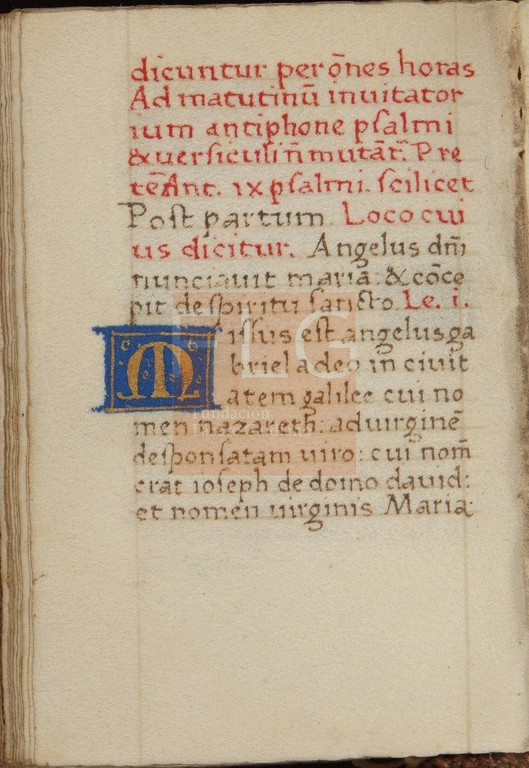 dicuntur per oēs horas
Ad matutinū inuitator
ium antiphone psalmi
& uersiculi n̄ mutāt̄. Pre
tēAnt. ix psalmi. scilicet
Post partum. Loco cui
us dicitur. Angelus dn̄i
nunciauit mariā: & cōce
pit de spiritu sancto. Le. i.
Missus est angelus ga
briel a deo in ciuit
atem galilee cui no
men nazareth: ad uirginē
desponsatam uiro: cui nom̄
erat ioseph de domo dauid:
et nomen uirginis Maria
Fundación